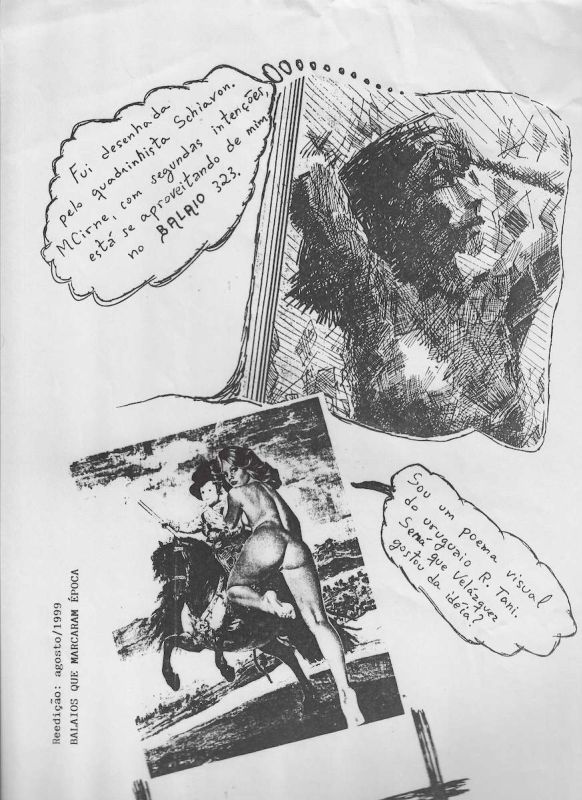 Fui desenhada
pelo quadrinhista Schiavon.
MCirne, com segundas intenções,
está se aproveitando de mim
no BALAIO 323.
Sou um poema visual
do uruguaio R. Tani.
Será que Velázquez
gostou da idéia?
Reedição: agosto/1999
BALAIOS QUE MARCARAM ÉPOCA